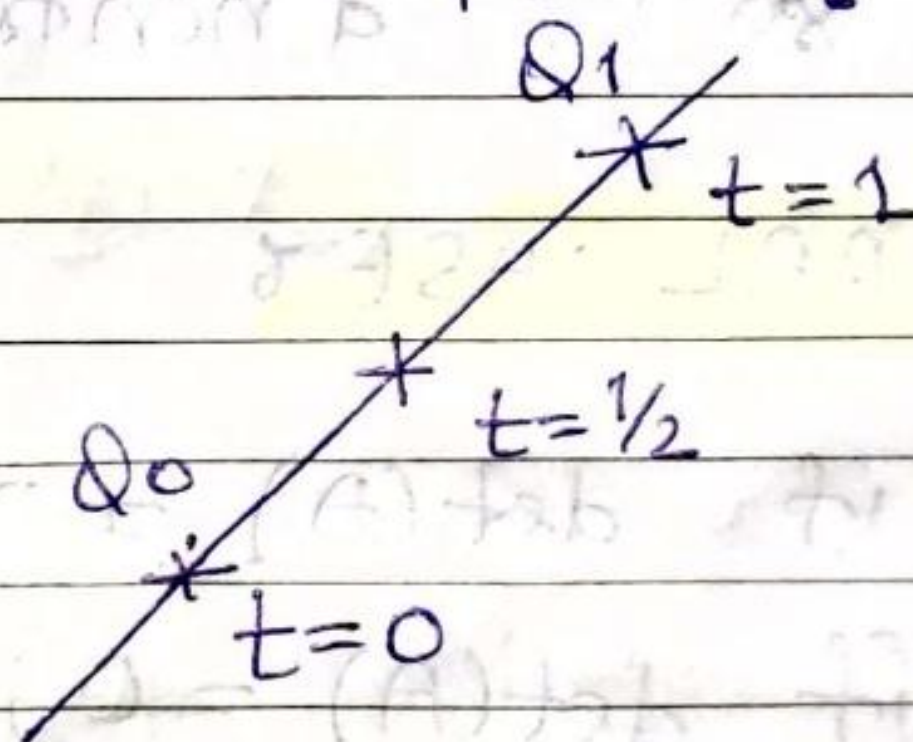 Q1
t = 1
t = 1/2
Q0
t = 0